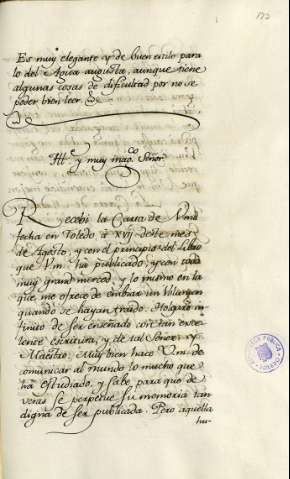 Es muy elegante y de buen estilo para
lo del Agua augusta, aunque tiene
algunas cosas de dificultad por no se
poder bien leer.
Ille. y muy magco. Señor
Recebi la Carta de Vmd
fecha en Toledo à xvij deste mes
de Agosto, y con el principio del libro
que Vm. ha publicado, y con todo
muy gran merced, y lo mismo en la
que me ofrece de embiar un Volumen
quando se hayan traido. Holgaré in-
finito de ser enseñado con tan exce-
lente escritura, y de tal Señor y
Maestro. Muy bien hace Vm. de
comunicar al mundo lo mucho que
ha estudiado, y sabe, para que de
veras se perpetue su memoria tan
digna de ser publicada. Pero aquella
hu-